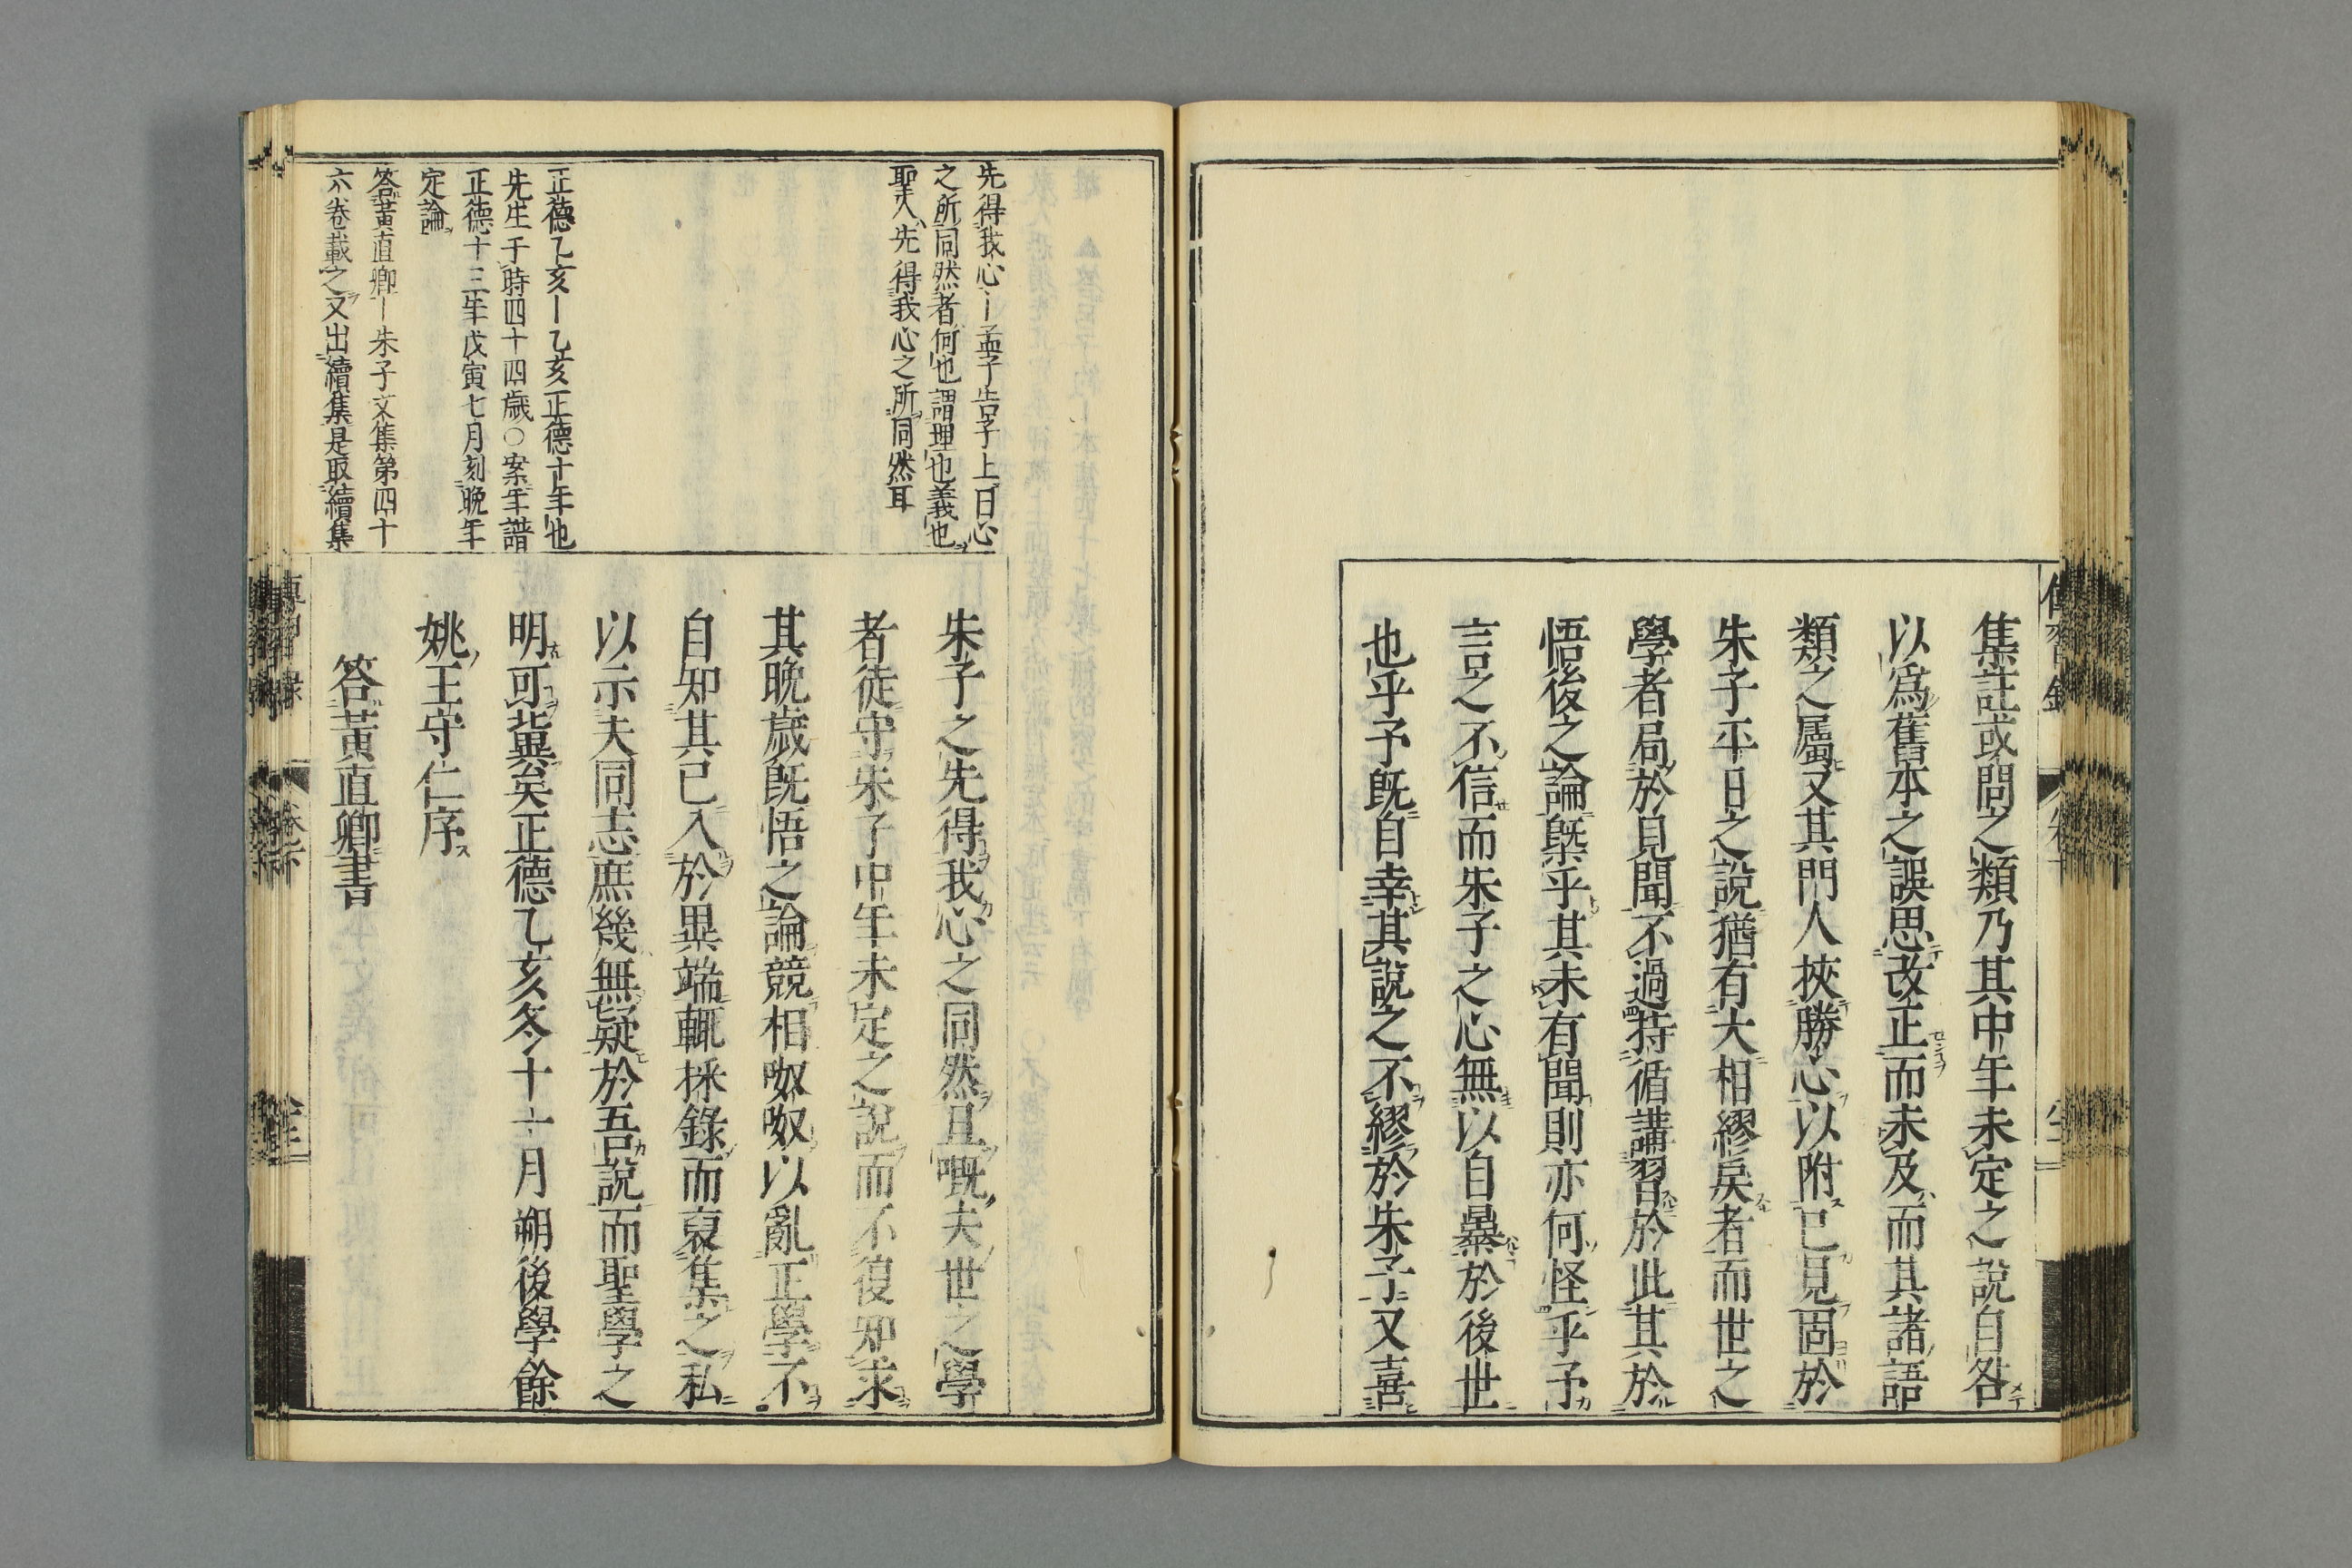 集註或問之類乃其中年未定之說自咎
以爲舊本之誤思改正而未及而其諸語
類之屬又其門人挾勝心以附已見固於
朱子平日之說猶有大相繆戾者而世之
學者局於見聞不過持循講習於此其於
悟後之論槩乎其未有聞則亦何怪乎予
言之不信而朱子之心無以自暴於後世
也乎予既自幸其說之不繆於朱子又喜
先得我心｜孟子告子上曰心
之所同然者何也謂理也義也
聖人先得我心之所同然耳
正德乙亥｜乙亥正德十年也
先生于時四十四歲○案年譜
正德十三年戊寅七月刻晚年
定論
答黃直卿｜朱子文集第四十
六卷載之又出續集是取續集
朱子之先得我心之同然且嘅夫世之學
者徒守朱子中年未定之說而不復知求
其晚歲既悟之論競相呶呶以亂正學不
自知其已入於異端輒採錄而裒集之私
以示夫同志庶幾無疑於吾說而聖學之
明可冀矣正德乙亥冬十一月朔後學餘
姚王守仁序
答黃直卿書